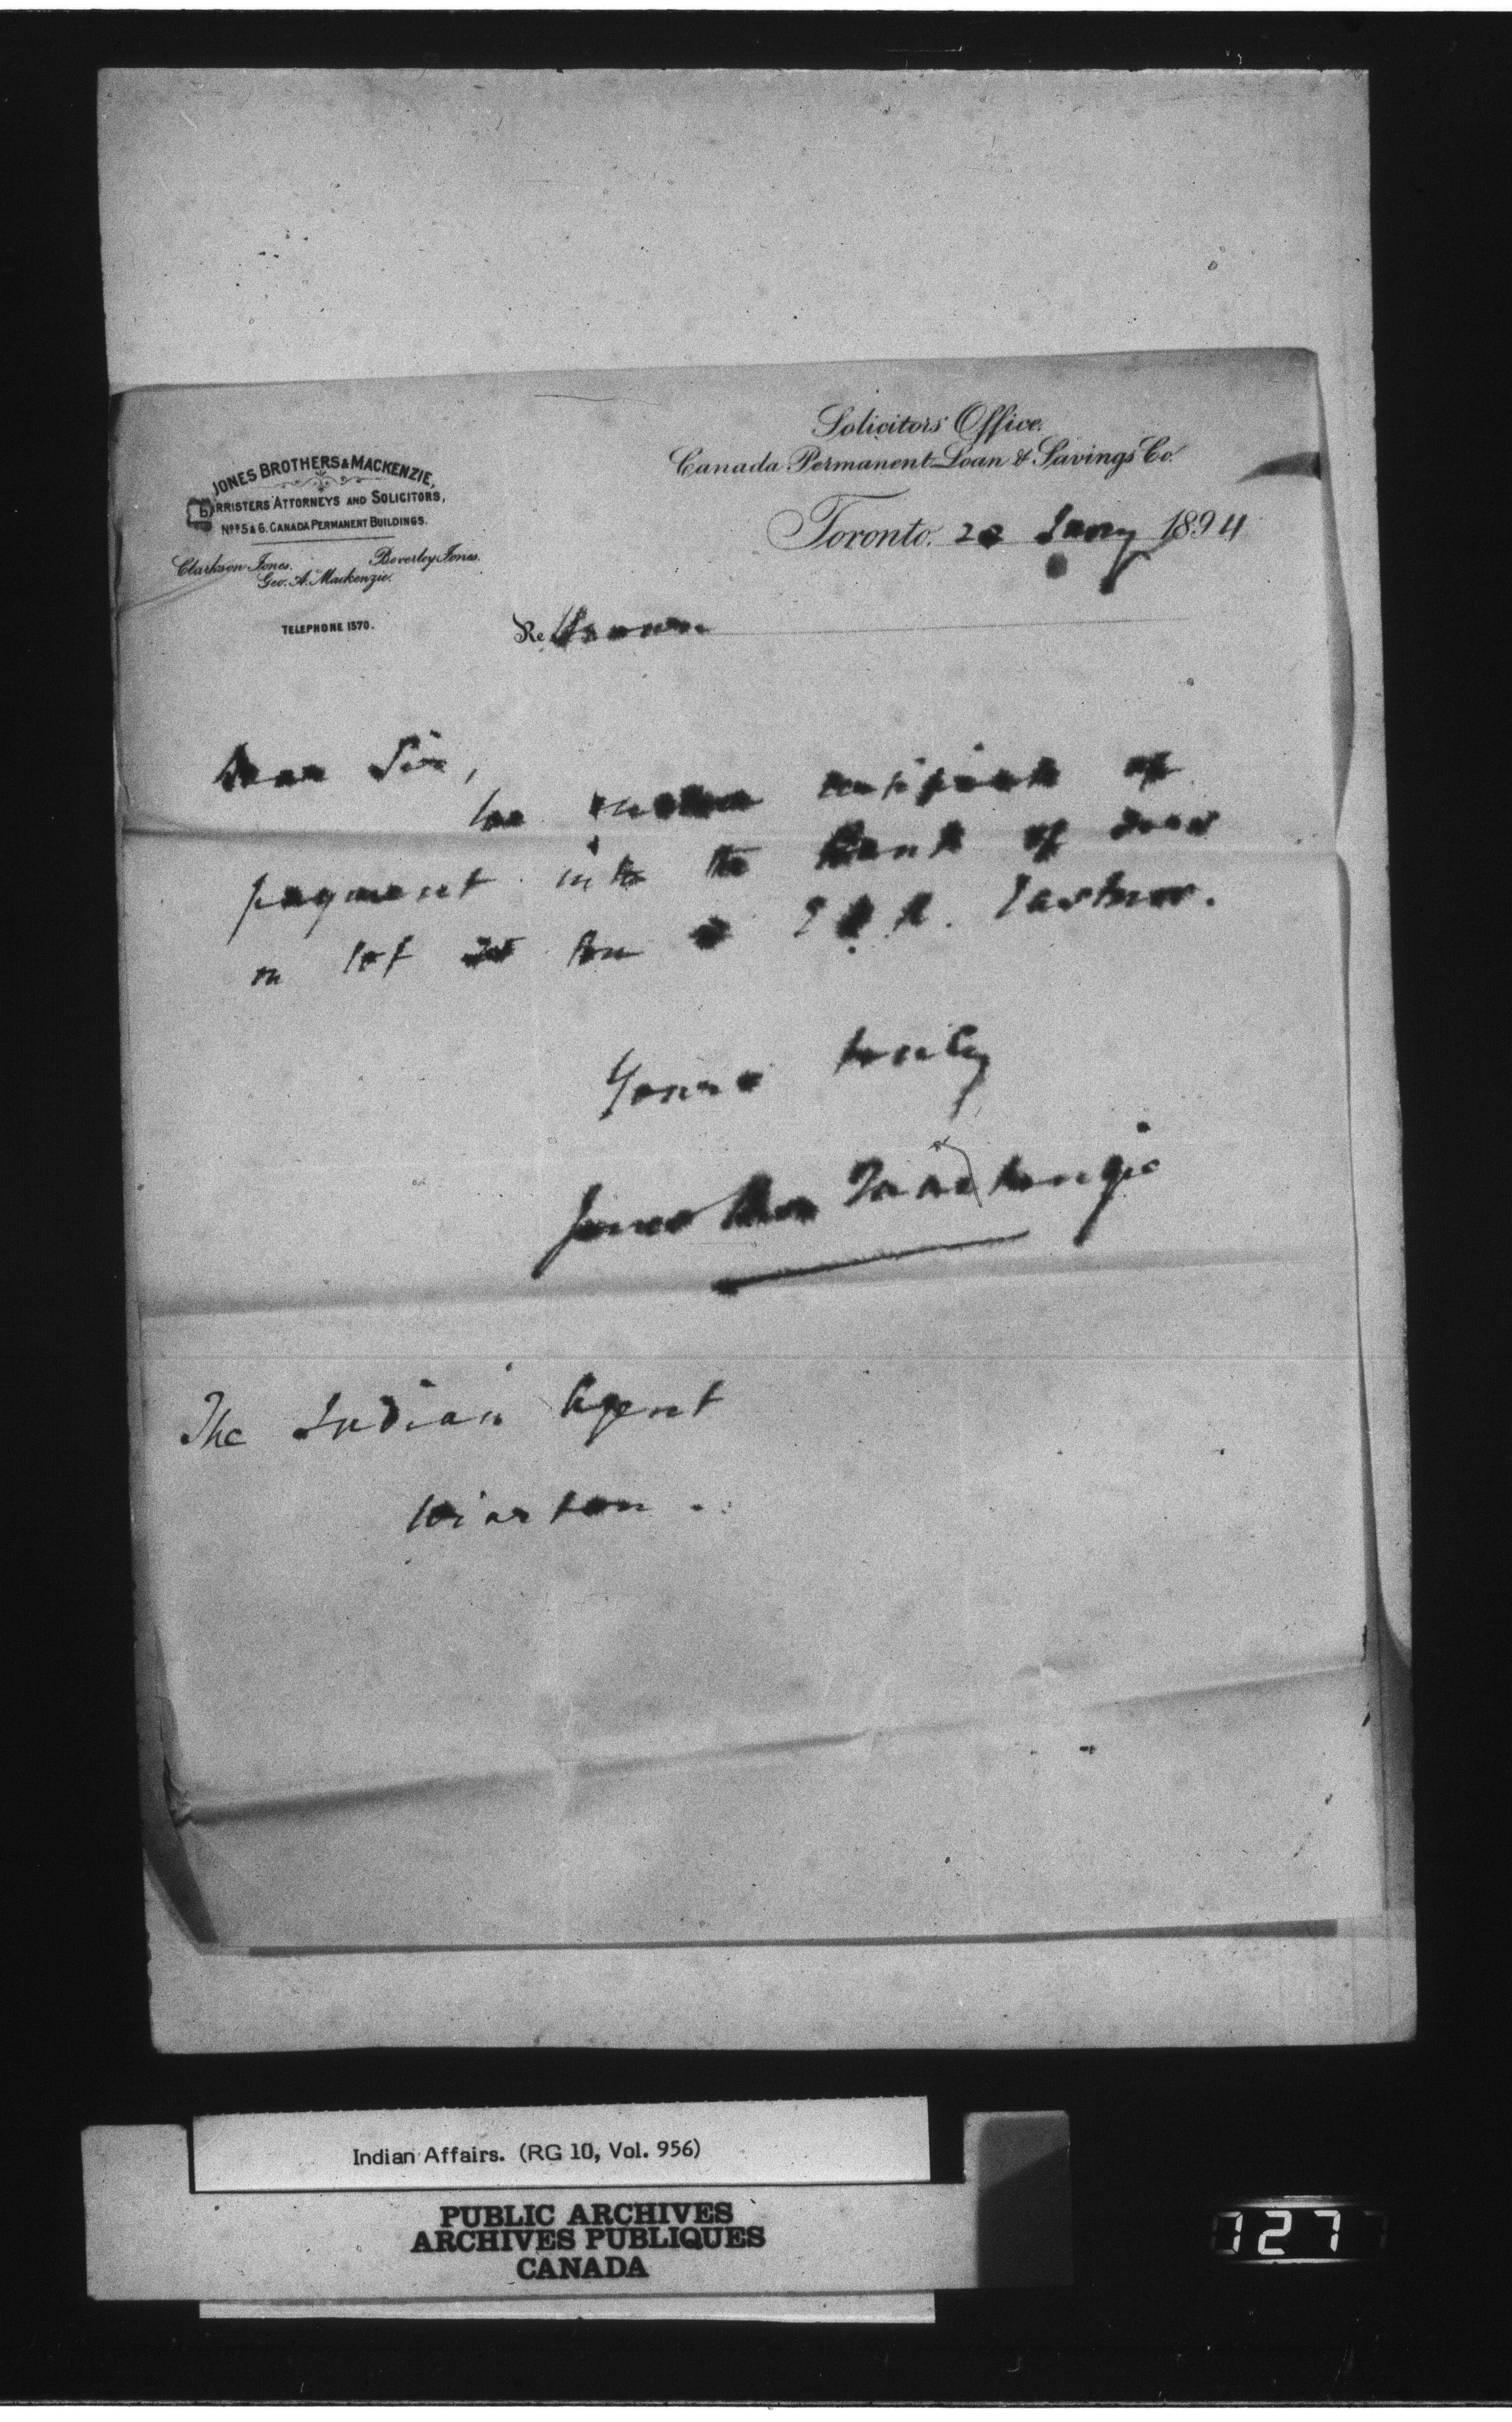 Solicitors' Office.
Canada Permanent Loan & Savings Co.
Toronto. 1894
JONES BROTHERS & MACKENZIE,
BARRISTERS ATTORNEYS AND SOLICITORS,
Nos 5 & 6. CANADA PERMANENT BUILDINGS.
Clarkson Jones. Beverley Jones.
Geo. A. Mackenzie.
TELEPHONE 1570.
Re
Dear Sir,
We enclose of
payment into the Bank of dues
on lot Con E B R. Eastnor.
Yours truly
Jones Bros Mackenzie
The Indian Agent
Wiarton.
Indian Affairs. (RG 10, Vol. 956)
PUBLIC ARCHIVES
ARCHIVES PUBLIQUES
CANADA
127